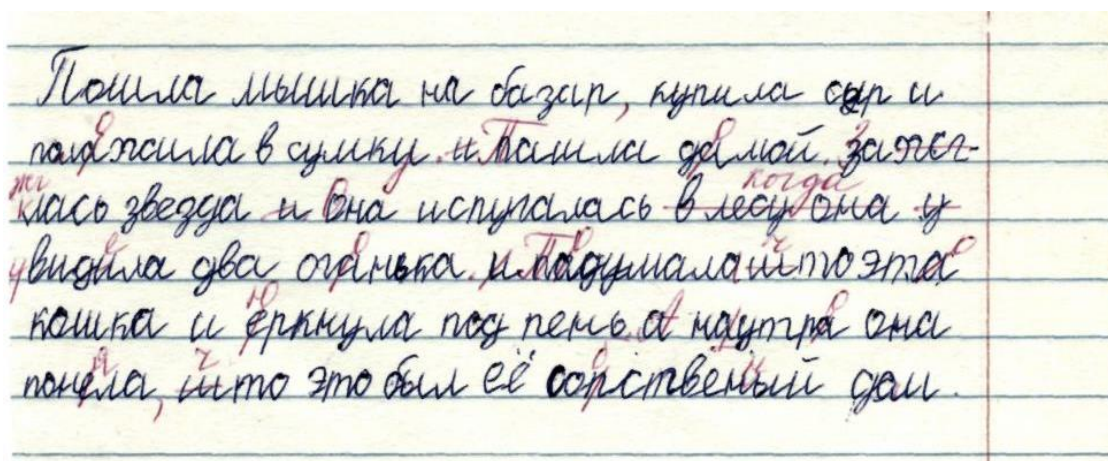 Пошла мышка на базар, купила сыр и
полажила в сумку. и Пашла дамой. Зажег-
клась звезда и Она испугалась в лесу когда она у
увидила два аганька. и Падумала што эта
кошка и еркнула под пень. А наутра она
понела, што это был её сопственый дом.